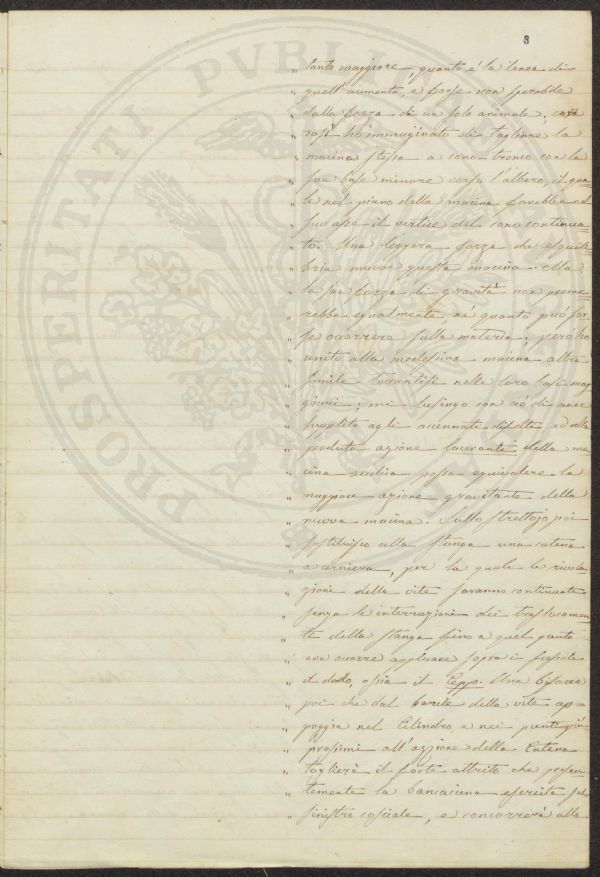 3
„ tanto maggiore, quanto é la linea di
„ quell'aumento, e forse non sperabile
„ dalla forza di un solo animale;
„ così ho immaginato di tagliare la
„ macina stessa a cono-tronco con la
„ sua base minore verso l'albero, il qua=
„ le nel piano della macina farebbe nel
„ suo asse il vertice del cono continua=
„ to. Una leggera forza che equili=
„ bria muove questa macina. Ma
„ la sua forza di gravità non preme=
„ rebbe egualmente, né quanto può for=
„ se occorrere sulla materia; però ho
„ unito alla medesima macina altra
„ simile toccantisi nelle loro basi mag=
„ giori; mi lusingo con ció di aver
„ supplito agli accennati difetti, e alla
„ perduta azione lacerante della ma=
„ cina vecchia possa equivalere la
„ maggiore azione gravitante della
„ nuova macina. Sullo strettojo poi
„ sostituisco alla stanga una catena
„ a cerniera, per la quale le rivolu=
„ zioni della vite saranno continuate
„ senza le interruzioni dei traslocamen=
„ ti della stanga fino a quel punto
„ ove occorre applicare sopra i
„ il dado, ossia il Ceppo. Una
„ poi che dal barile della vite ap=
„ poggia nel Cilindro, e nei punti più
„ prossimi all'azzione della Catena
„ toglierà il forte attrito che presen=
„ temente la esercita sul
„ sinistro cosciale, e concorrerà alla
PROSPERITATI PVBLICAE